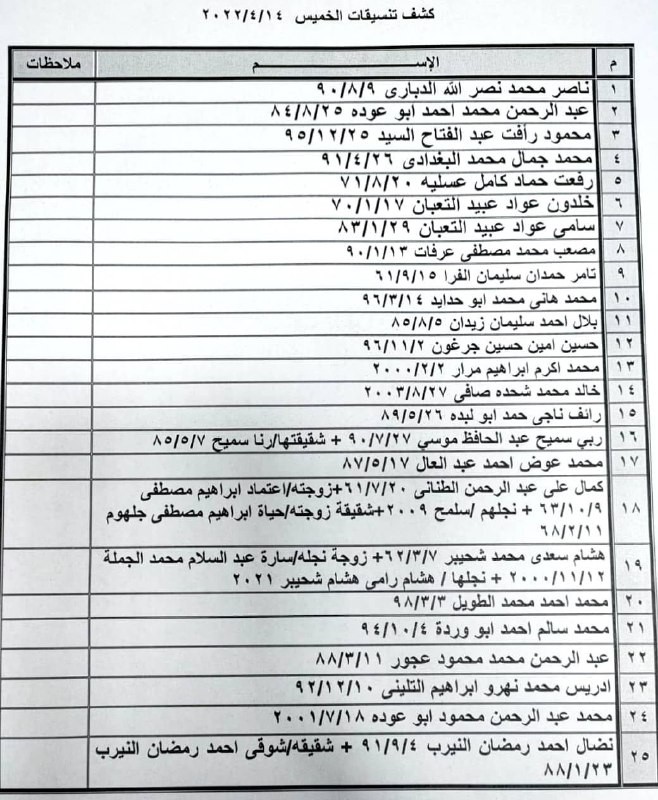 كشف تنسيقات الخميس ٢٠٢٢/٤/١٤
م الإســـم ملاحظات
١ ناصر محمد نصر الله الدبارى ٩٠/٨/٩
٢ عبد الرحمن محمد احمد ابو عوده ٨٤/٨/٢٥
٣ محمود رأفت عبد الفتاح السيد ٩٥/١٢/٢٥
٤ محمد جمال محمد البغدادى ٩١/٤/٢٦
٥ رفعت حماد كامل عسليه ٧١/٨/٢٠
٦ خلدون عواد عبيد التعبان ٧٠/١/١٧
٧ سامى عواد عبيد التعبان ٨٣/١/٢٩
٨ مصعب محمد مصطفى عرفات ٩٠/١/١٣
٩ تامر حمدان سليمان الفرا ٦١/٩/١٥
١٠ محمد هانى محمد ابو حدايد ٩٦/٣/١٤
١١ بلال احمد سليمان زيدان ٨٥/٨/٥
١٢ حسين امين حسين جرغون ٩٦/١١/٢
١٣ محمد اكرم ابراهيم مرار ٢٠٠٠/٢/٢
١٤ خالد محمد شحده صافى ٢٠٠٣/٨/٢٧
١٥ رائف ناجى حمد ابو لبده ٨٩/٥/٢٦
١٦ ربي سميح عبد الحافظ موسي ٩٠/٧/٢٧ + شقيقتها/رنا سميح ٨٥/٥/٧
١٧ محمد عوض احمد عبد العال ٨٧/٥/١٧
١٨ كمال على عبد الرحمن الطنانى ٦١/٧/٢٠+زوجته/اعتماد ابراهيم مصطفى
٦٣/١٠/٩ + نجلهم /سلمح ٢٠٠٩+شقيقة زوجته/حياة ابراهيم مصطفى جلهوم
٦٨/٢/١١
١٩ هشام سعدى محمد شحيبر ٦٢/٣/٧+ زوجة نجله/سارة عبد السلام محمد الجملة
٢٠٠٠/١١/١٢ + نجلها / هشام رامى هشام شحيبر ٢٠٢١
٢٠ محمد احمد محمد الطويل ٩٨/٣/٣
٢١ محمد سالم احمد ابو وردة ٩٤/١٠/٤
٢٢ عبد الرحمن محمد محمود عجور ٨٨/٣/١١
٢٣ ادريس محمد نهرو ابراهيم التلينى ٩٢/١٢/١٠
٢٤ محمد عبد الرحمن محمود ابو عوده ٢٠٠١/٧/١٨
٢٥ نضال احمد رمضان النيرب ٩١/٩/٤ + شقيقه/شوقى احمد رمضان النيرب
٨٨/١/٢٣